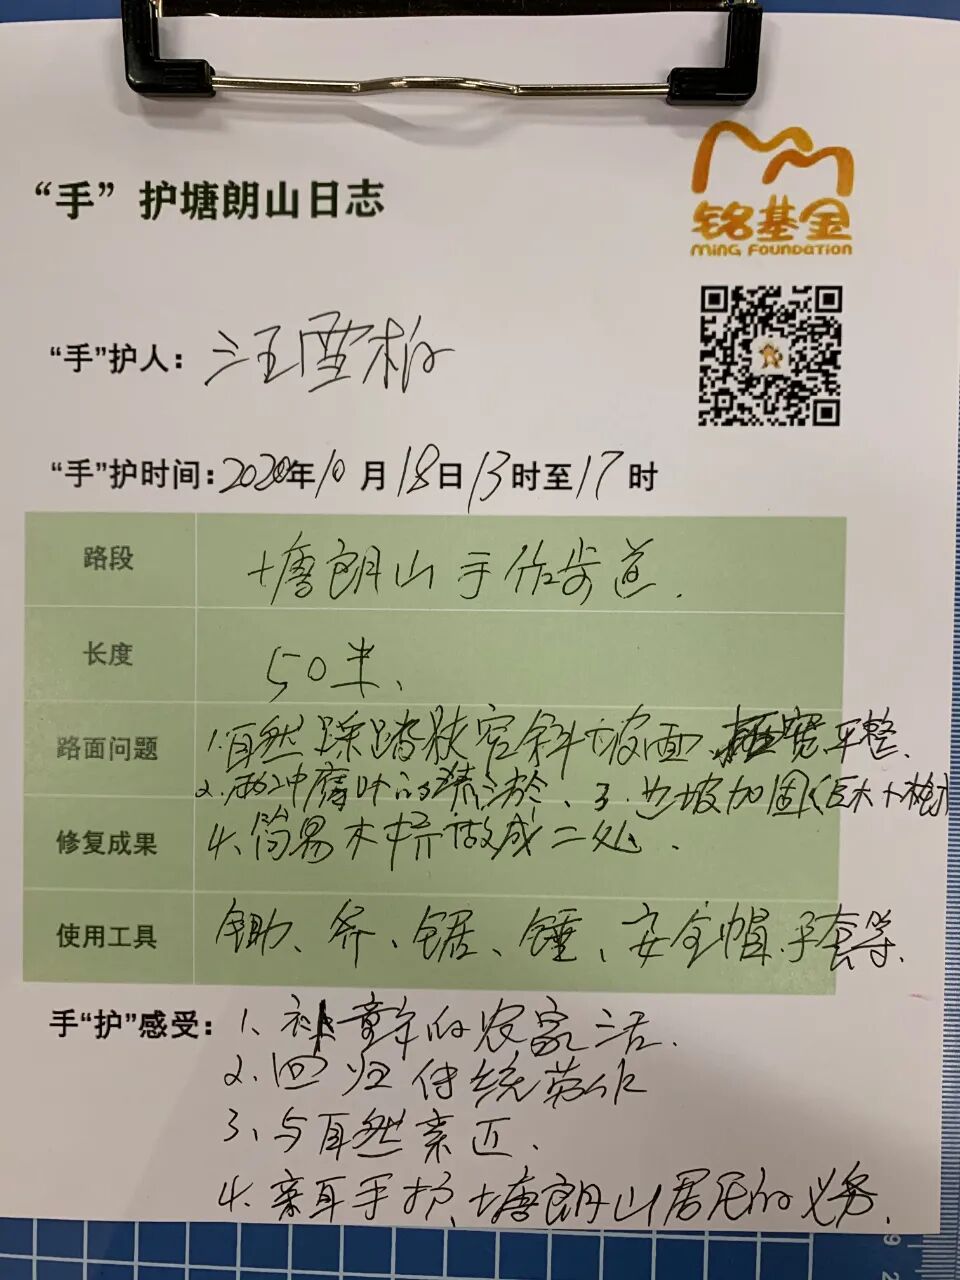 “手”护塘朗山日志
铭基金
MING FOUNDATION
“手”护人：汪雪松
“手”护时间：2020年10月18日13时至17时
路段 塘朗山手作步道.
长度 50米、
路面问题 1.自然踩踏狭窄斜坡面、拓宽平整.
2.雨冲腐叶的清淤、3.边坡加固(巨木卜桩)
修复成果 4.简易木桥做成二处.
使用工具 锄、斧、锯、锤、安全帽、手套等.
手“护”感受：1、补童年的农家活.
2.回归传统劳作
3、与自然亲近.
4.亲耳手护、塘朗山居民的义务.
9